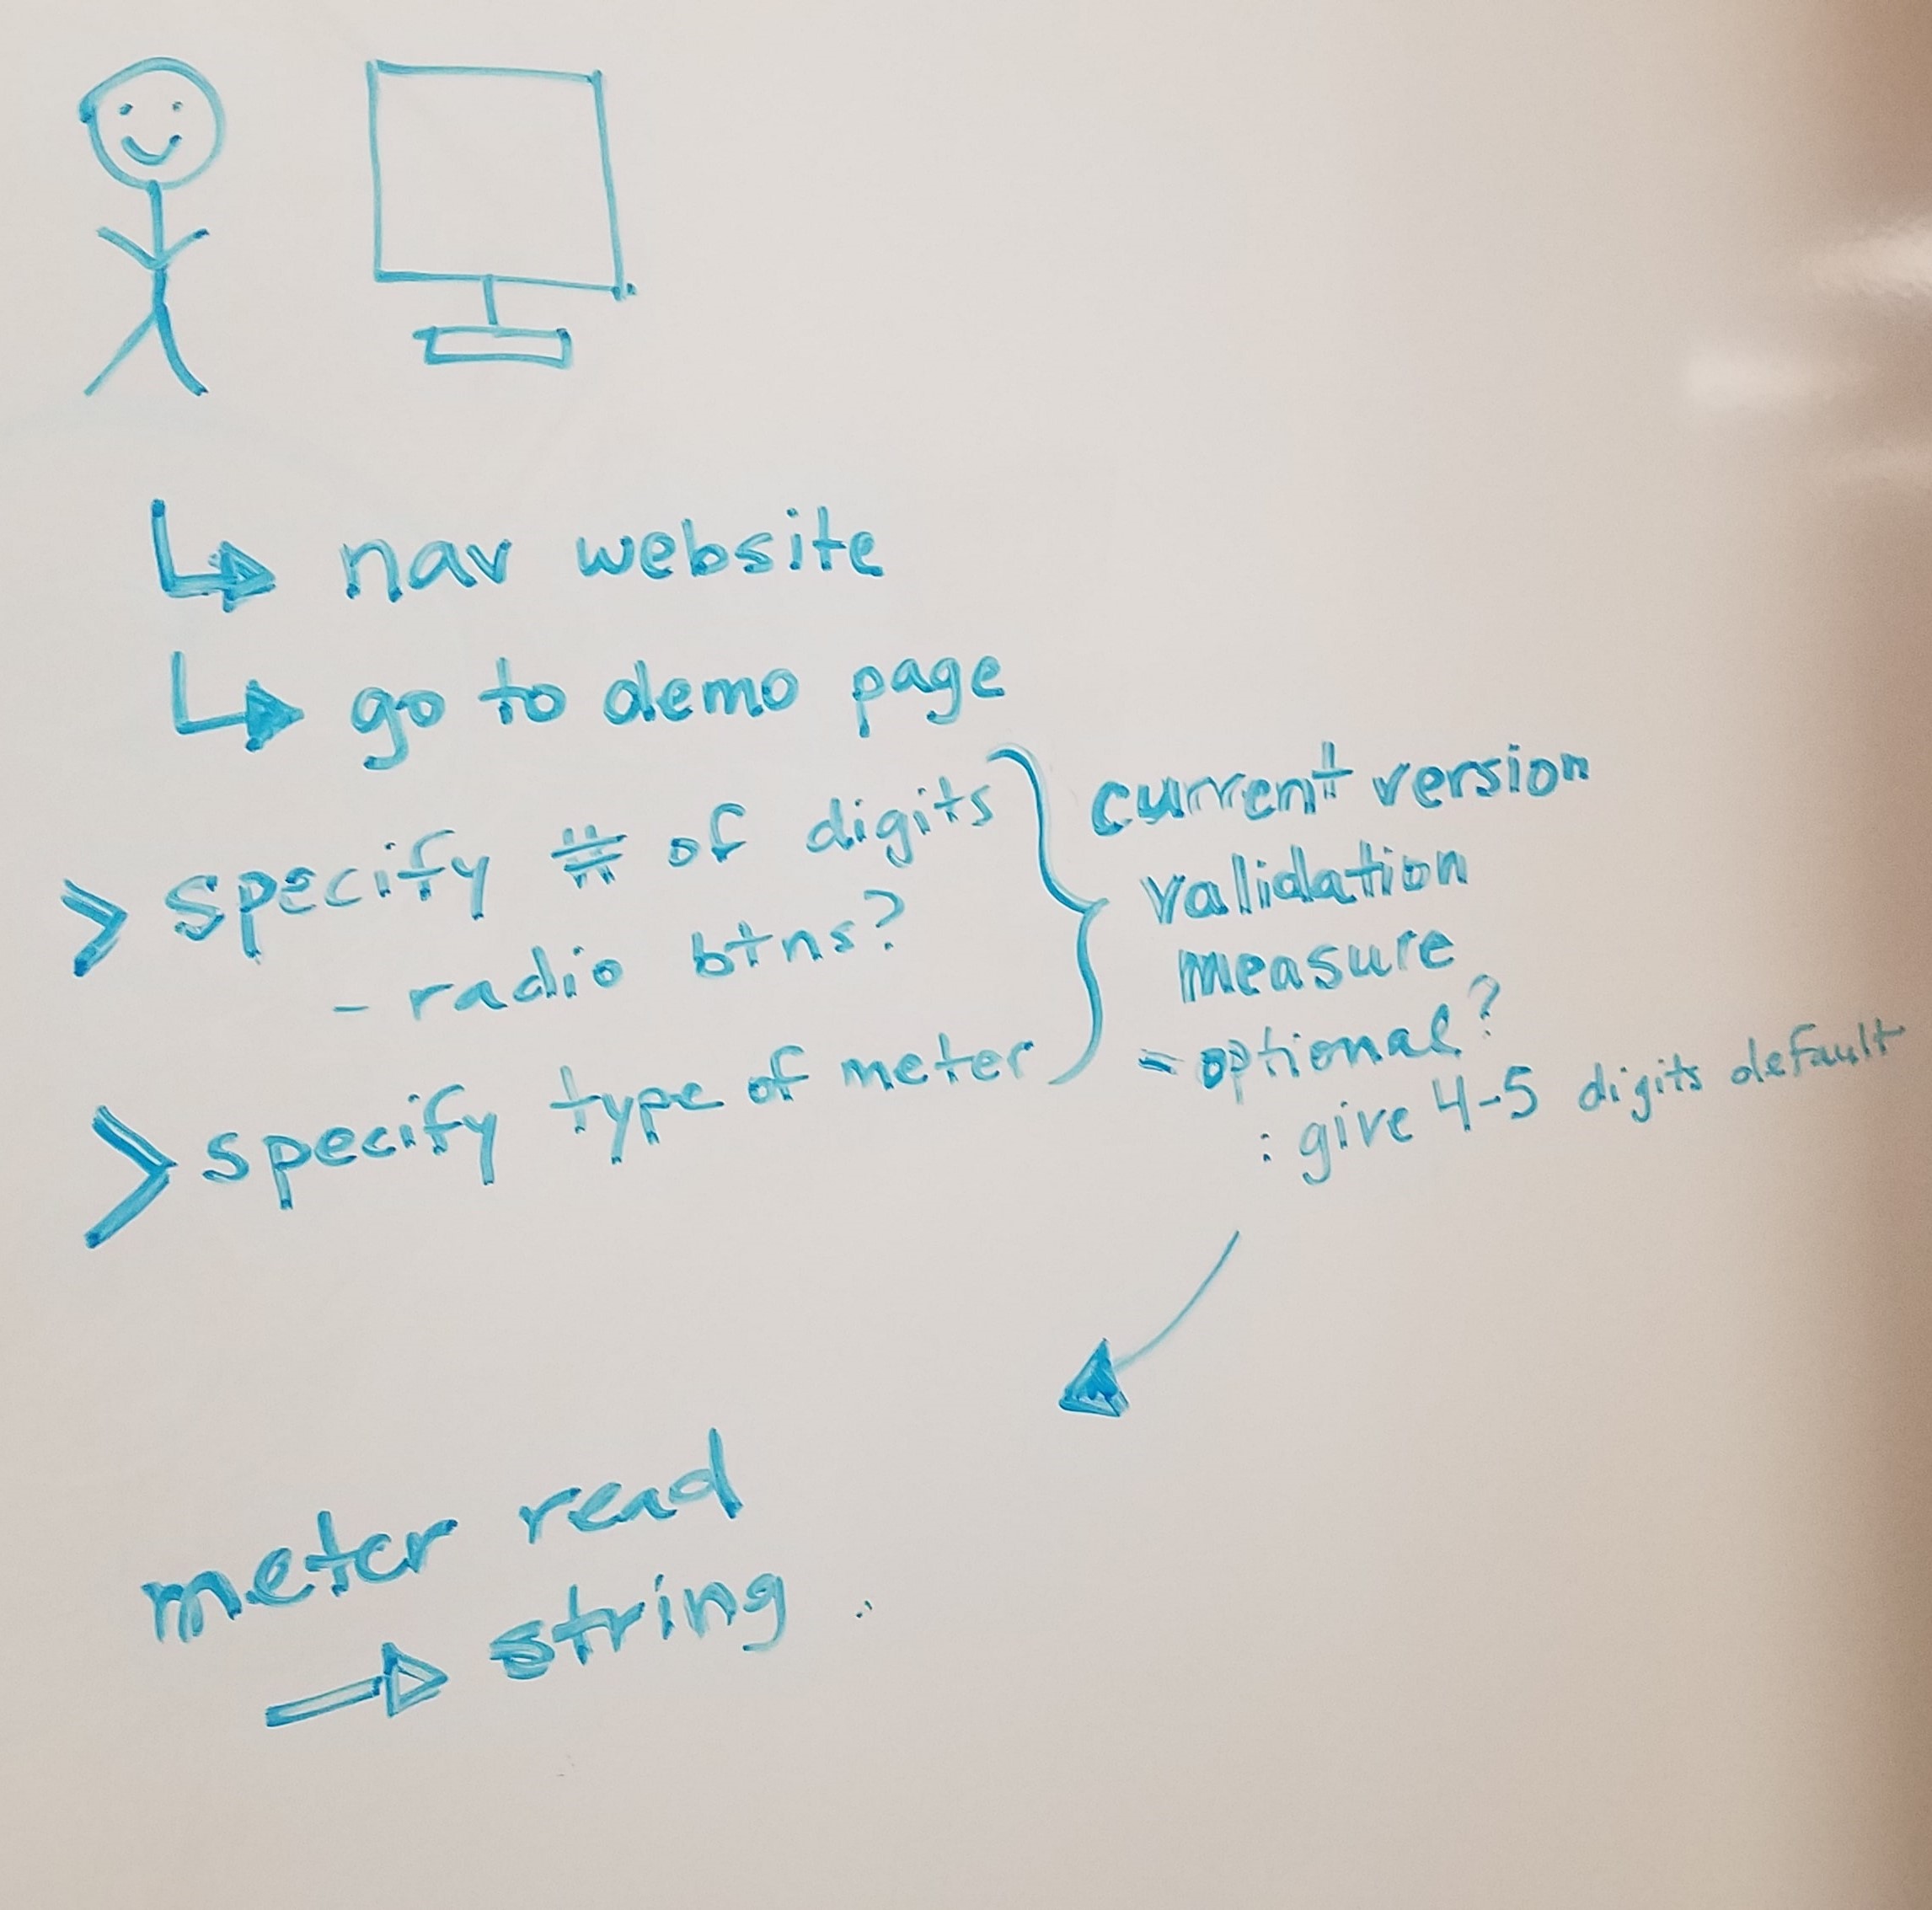 nav website
go to demo page
> specify # of digits
- radio btns?
> specify type of meter
current version
validation
measure
- optional?
: give 4-5 digits default
meter read
string